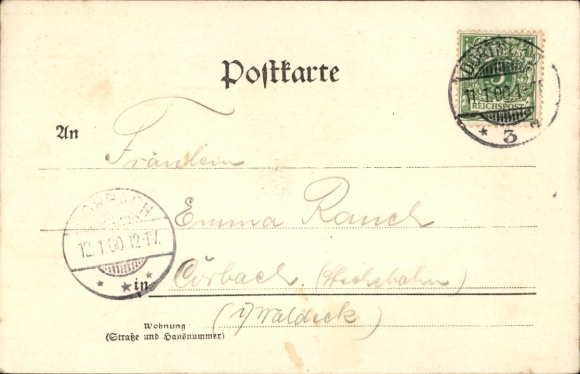 Postkarte
5
REICHSPOST
11.1.00.1-
* 3
An
Fräulein
Emma Rauch
CORBACH
12.1.00.12-1
in Corbach
(i/Waldeck)
Wohnung
(Straße und Hausnummer)